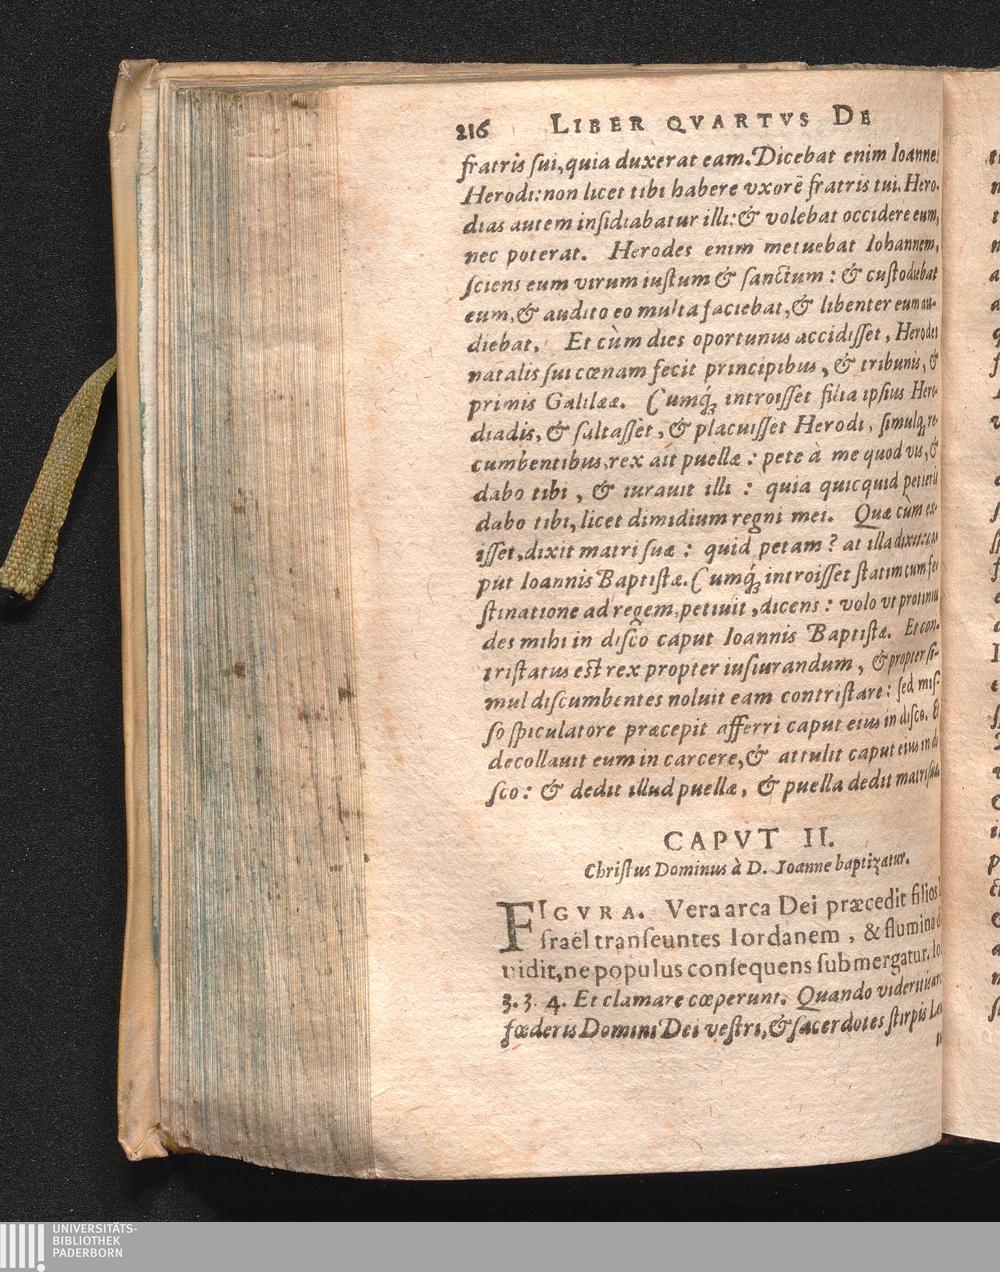 216 LIBER QVARTVS DE
fratris ſui, quia duxerat eam. Dicebat enim Ioannes
Herodi: non licet tibi habere vxorē fratris tui. Hero-
dias autem inſidiabatur illi: & volebat occidere eum,
nec poterat. Herodes enim metuebat Iohannem,
ſciens eum virum iuſtum & ſanctum: & cuſtodiebat
eum, & audito eo multa faciebat, & libenter eum au-
diebat. Et cùm dies oportunus accidiſſet, Herodes
natalis ſui cœnam fecit principibus, & tribunis, &
primis Galilææ. Cumq́; introiſſet filia ipſius Hero-
diadis, & ſaltaſſet, & placuiſſet Herodi, ſimulq; re-
cumbentibus, rex ait puellæ: pete à me quod vis, &
dabo tibi, & iurauit illi: quia quicquid petieris
dabo tibi, licet dimidium regni mei. Quæ cùm ex-
iſſet, dixit matri ſuæ: quid petam? at illa dixit: ca-
put Ioannis Baptiſtæ. Cumq́; introiſſet ſtatim cum fe-
ſtinatione ad regem, petiuit, dicens: volo vt protinus
des mihi in diſco caput Ioannis Baptiſtæ. Et con-
triſtatus eſt rex propter iuſiurandum, & propter ſi-
mul diſcumbentes noluit eam contriſtare: ſed miſ-
ſo ſpiculatore præcepit afferri caput eius in diſco. Et
decollauit eum in carcere, & attulit caput eius in di-
ſco: & dedit illud puellæ, & puella dedit matri ſuæ
CAPVT II.
Chriſtus Dominus à D. Ioanne baptizatur.
FIGVRA. Vera arca Dei præcedit filios
ſraël tranſeuntes Iordanem, & flumina
uidit, ne populus conſequens ſubmergatur. Io
3. 3. 4. Et clamare cœperunt. Quando videritis ar
fœderis Domini Dei veſtri, & ſacerdotes ſtirpis Le
UNIVERSITÄTS-
BIBLIOTHEK
PADERBORN